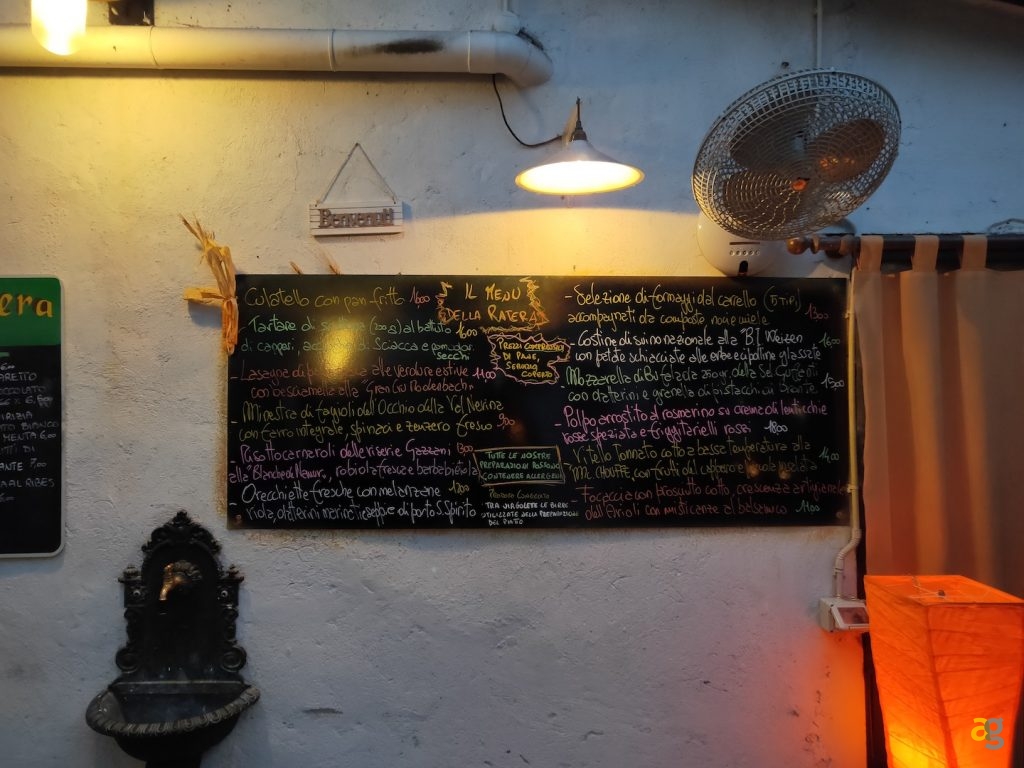 Benvenuti
era
ARETTO
OCCOLATO
IRIZIA
TO BIANCO
MENTA 6,00
TTI DI
ANTE 7,00
A AL RIBES
Culatello con pan fritto 16,00
- Tartare di (200 g) al battuto 16,00
di capperi, di Sciacca e pomodori
secchi
- Lasagna di alle verdure estive 14,00
con besciamella alla "Gran Cru Rodenbach"
Minestra di fagioli dell'Occhio della Val Nerina
con farro integrale, spinaci e zenzero fresco 9,00
Risotto carnaroli delle riserie Gazzani 13,00
alla "Blanche de Namur", robiola fresca e barbabietola
Orecchiette fresche con melanzane 12,00
viola, datterini marino e seppie di porto S. Spirito
IL MENU
DELLA RATERA
PREZZI COMPRENSIVI
DI PANE,
SERVIZIO,
COPERTO
TUTTE LE NOSTRE
PREPARAZIONI POSSONO
CONTENERE ALLERGENI
TRA VIRGOLETTE LE BIRRE
UTILIZZATE NELLA PREPARAZIONE
DEL PIATTO
- Selezione di formaggi dal carrello (5 TIPI)
accompagnati da composte noci e miele 13,00
- Costine di suino nazionale alla "B.I. Weizen" 16,00
con patate schiacciate alle erbe e cipolline glassate
Mozzarella di Bufala da 250 gr. della Sel. Cuffanti 15,00
con datterini e granella di pistacchi di Bronte
- Polpo arrostito al rosmarino su crema di lenticchie
rosse speziata e friggitarielli rossi 18,00
Vitello Tonnato cotto a bassa temperatura alla 14,00
"M. CHOUFFE" con frutti del cappero e insalata
Focaccia con Prosciutto cotto, crescenza artigianale
dell'Arioli con misticanza al balsamico 11,00
ag